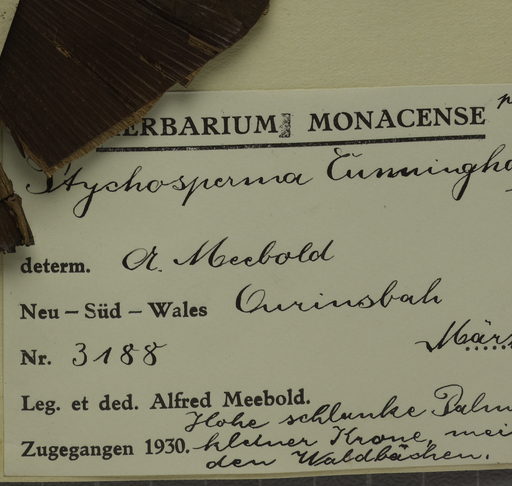 HERBARIUM MONACENSE
Ptychosperma Cunningha
determ. A. Meebold
Neu – Süd – Wales Ourinsbah
März
Nr. 3188
Leg. et ded. Alfred Meebold.
Hohe schlanke Palm
Zugegangen 1930. kleiner Krone, mei
den Waldbächen.